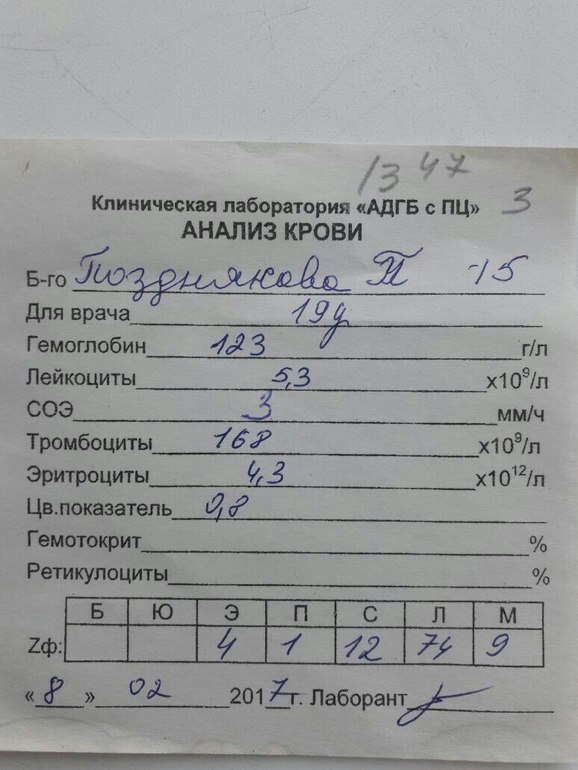 1347
3
Клиническая лаборатория «АДГБ с ПЦ»
АНАЛИЗ КРОВИ
Б-го Позднякова П -15
Для врача 19у
Гемоглобин 123 г/л
Лейкоциты 5,3 х10⁹/л
СОЭ 3 мм/ч
Тромбоциты 168 х10⁹/л
Эритроциты 4,3 х10¹²/л
Цв.показатель 0,8
Гемотокрит %
Ретикулоциты %
Б Ю Э П С Л М
Zф: 4 1 12 74 9
« 8 » 02 2017г. Лаборант